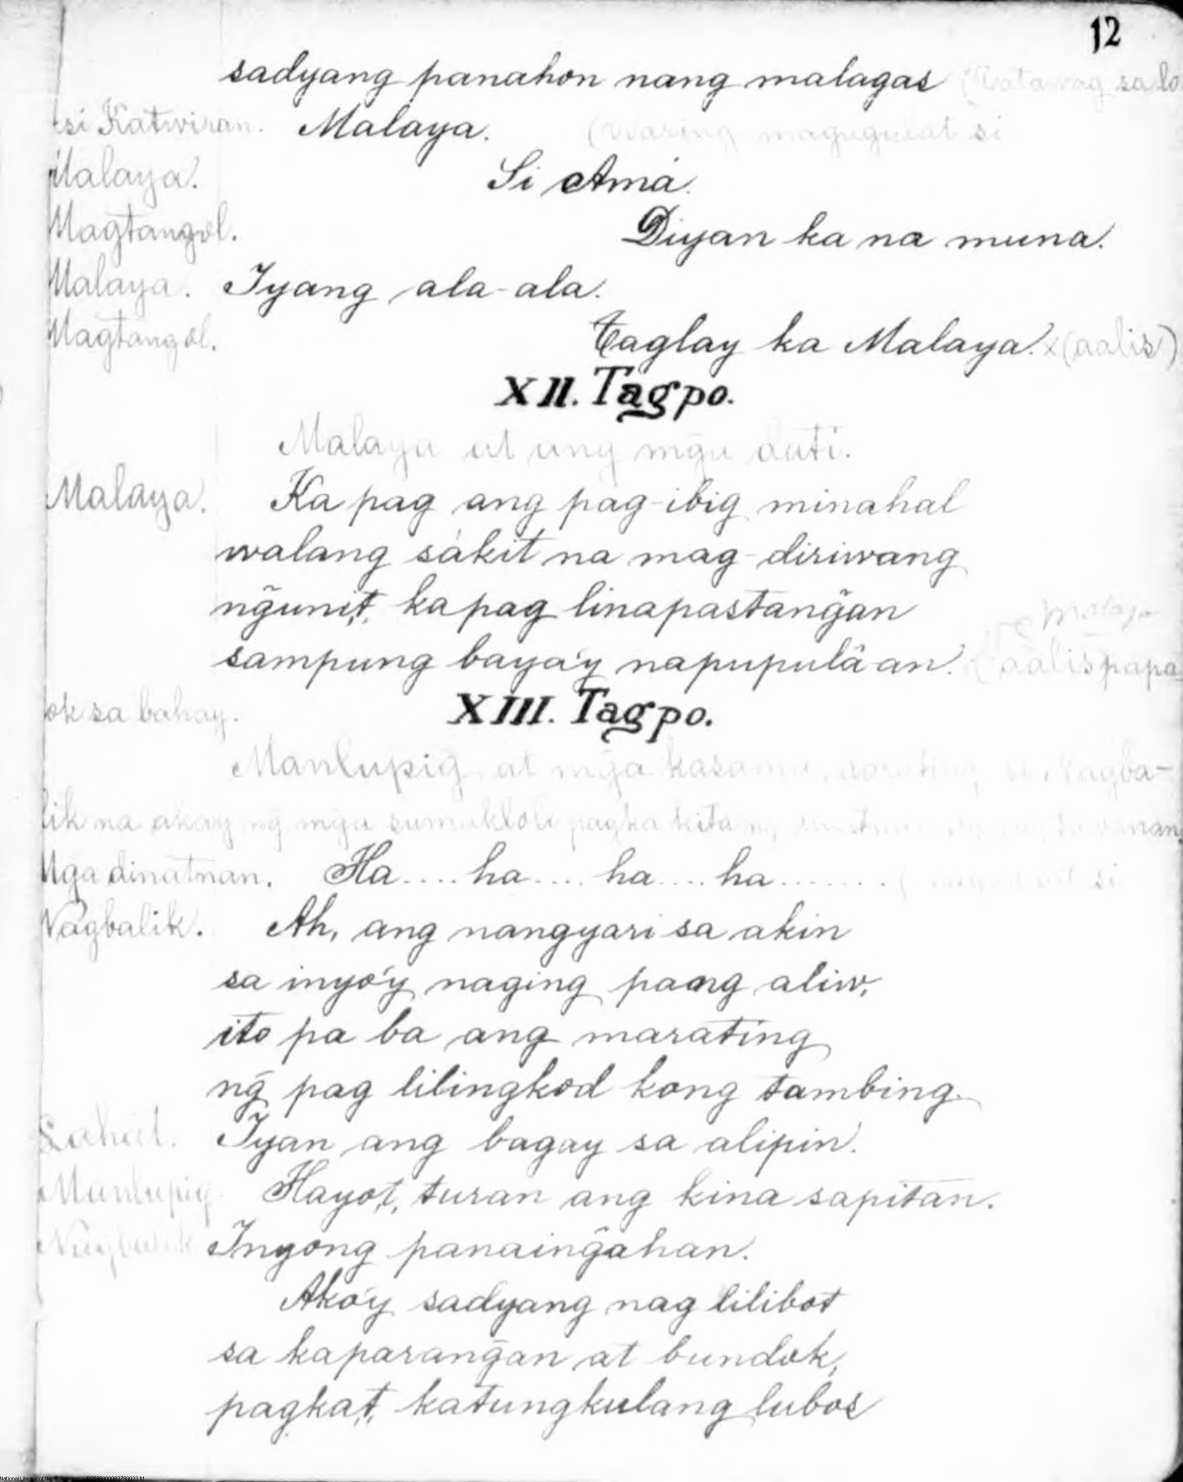 12
sadyang panahon nang malagas (Tatawag sa lo
si Katwiran. Malaya. (Waring magugulat si
Malaya. Si Amá.
Magtangol. Diyan ka na muna.
Malaya. Iyang ala-ala.
Magtangol. Taglay ka Malaya. x (aalis)
XII. Tagpo.
Malaya at ang mg̃a dati.
Malaya. Ka pag ang pag-ibig minahal
walang sákit na mag-diriwang
ng̃unit, ka pag linapastang̃an
sampung baya'y napupulâ-an. Malaya
(aalis papa
ok sa bahay.
XIII. Tagpo.
Manlupig at mg̃a kasama, darating si Nagba-
lik na akay ng̃ mg̃a sumukloli pagka kita ng
Mga dinatnan. Ha....ha....ha....ha....... ( si
Nagbalik. Ah, ang nangyari sa akin
sa inyo'y naging pang aliw,
ito pa ba ang marating
ng̃ pag lilingkod kong tambing.
Lahat. Iyan ang bagay sa alipin.
Manlupig. Hayo't, turan ang kina sapitan.
Nagbalik Inyong panaing̃ahan.
Ako'y sadyang nag lilibot
sa kaparang̃an at bundok,
pagka't, katungkulang lubos